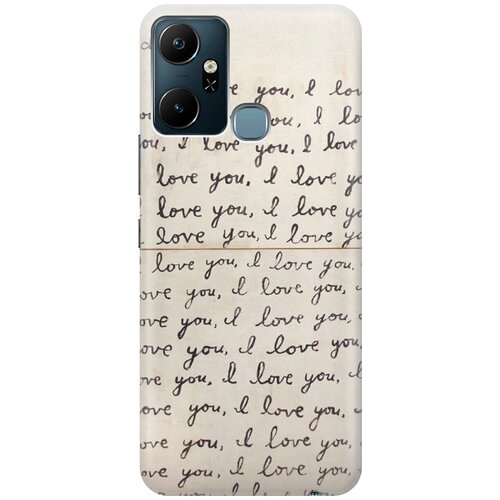 e you, I lov
you, I lo
ou, I love you, I love
love you, I love yo
love you, I love yo
love you, I love yo
I love you, I love you,
ove you, I love you,
ove you, I love you,
ove you, I love you,
ve you, I love you, I
ove you, I love you,
ove you, I love you,
ove you, I love you,